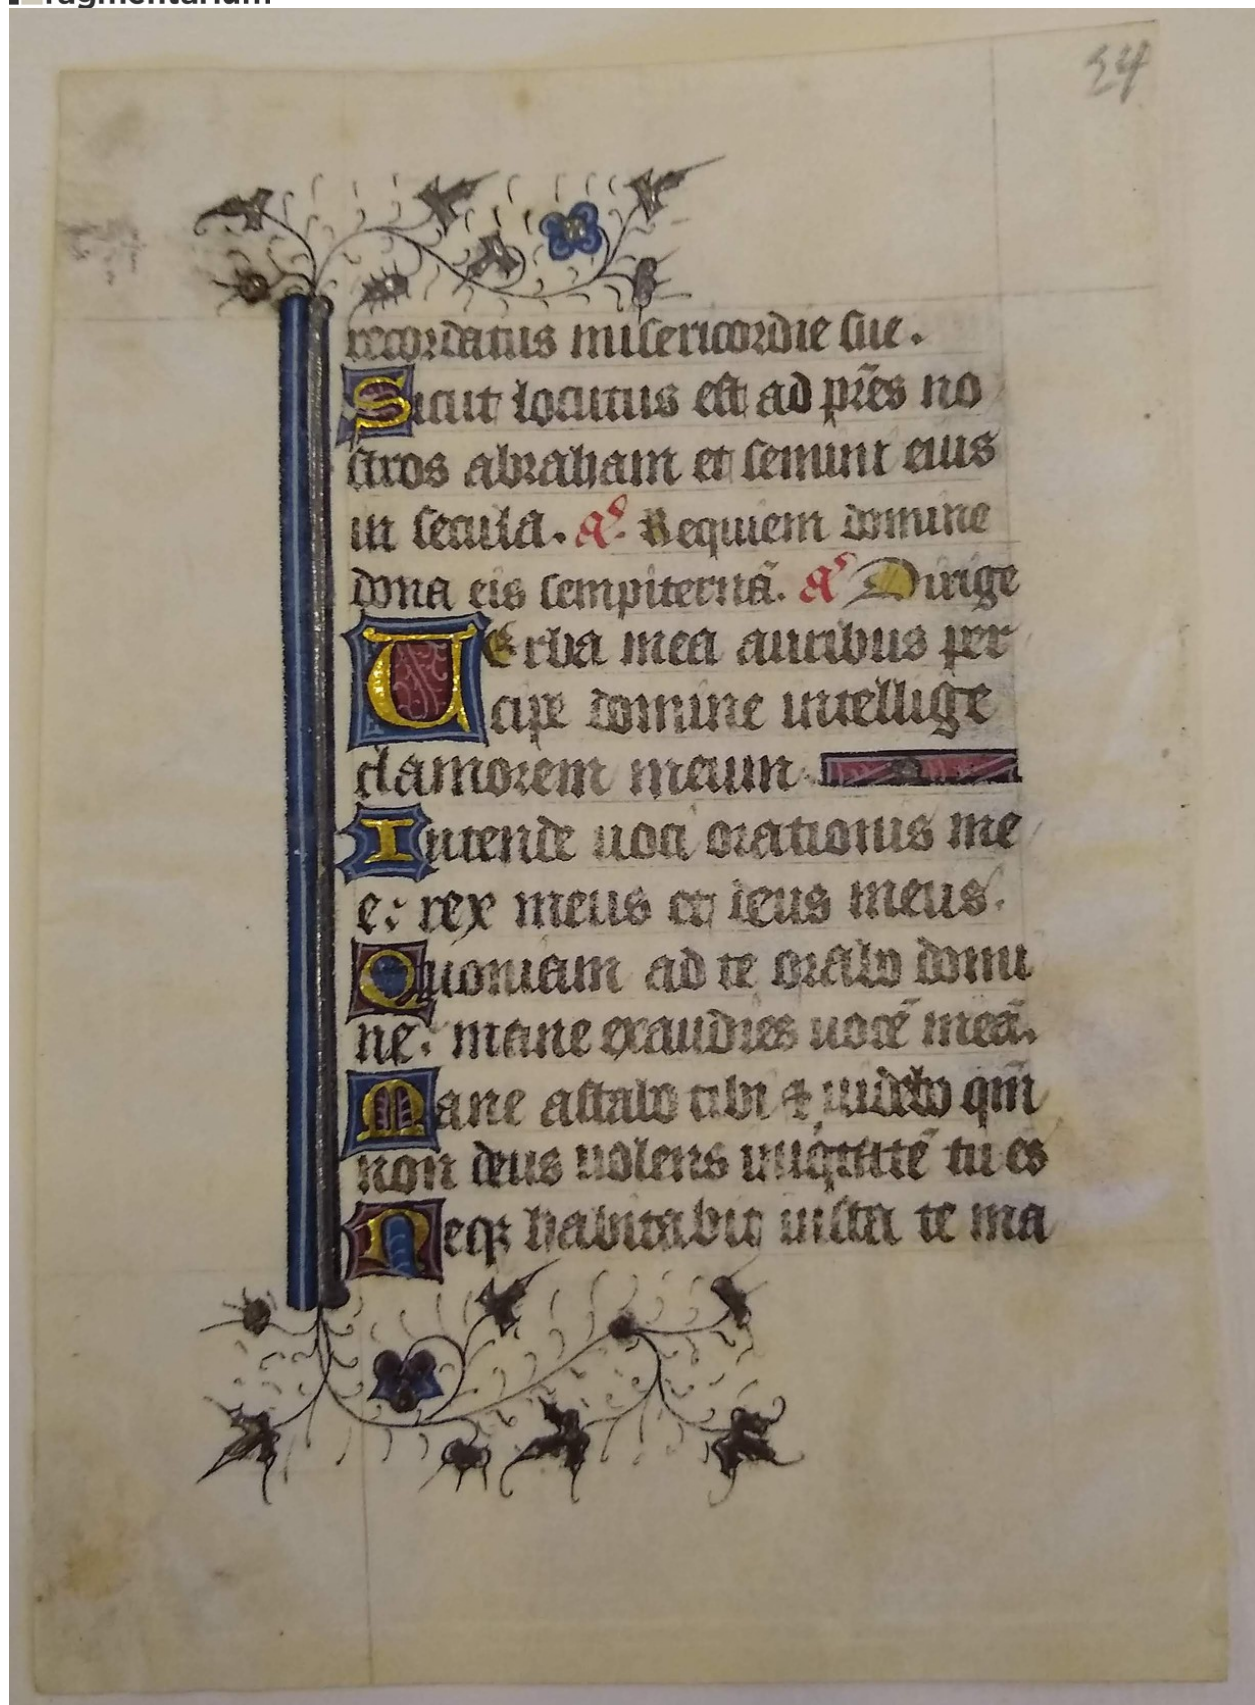 ragmentarium
24
recordatus misericordie sue.
Sicut locutus est ad pr̃es no
stros abraham et semini eius
in secula. a͛. Requiem domine
dona eis sempiternã. a͛ Dirige
UErba mea auribus per
cipe domine intellige
clamorem meum.
Intende uoci orationis me
e: rex meus et deus meus.
Quoniam ad te orabo domi
ne: mane exaudies uocẽ meã.
Mane astabo tibi & uidebo qm̃
non deus uolens iniq̃tatẽ tu es
Neqꝫ habitabit iuxta te ma